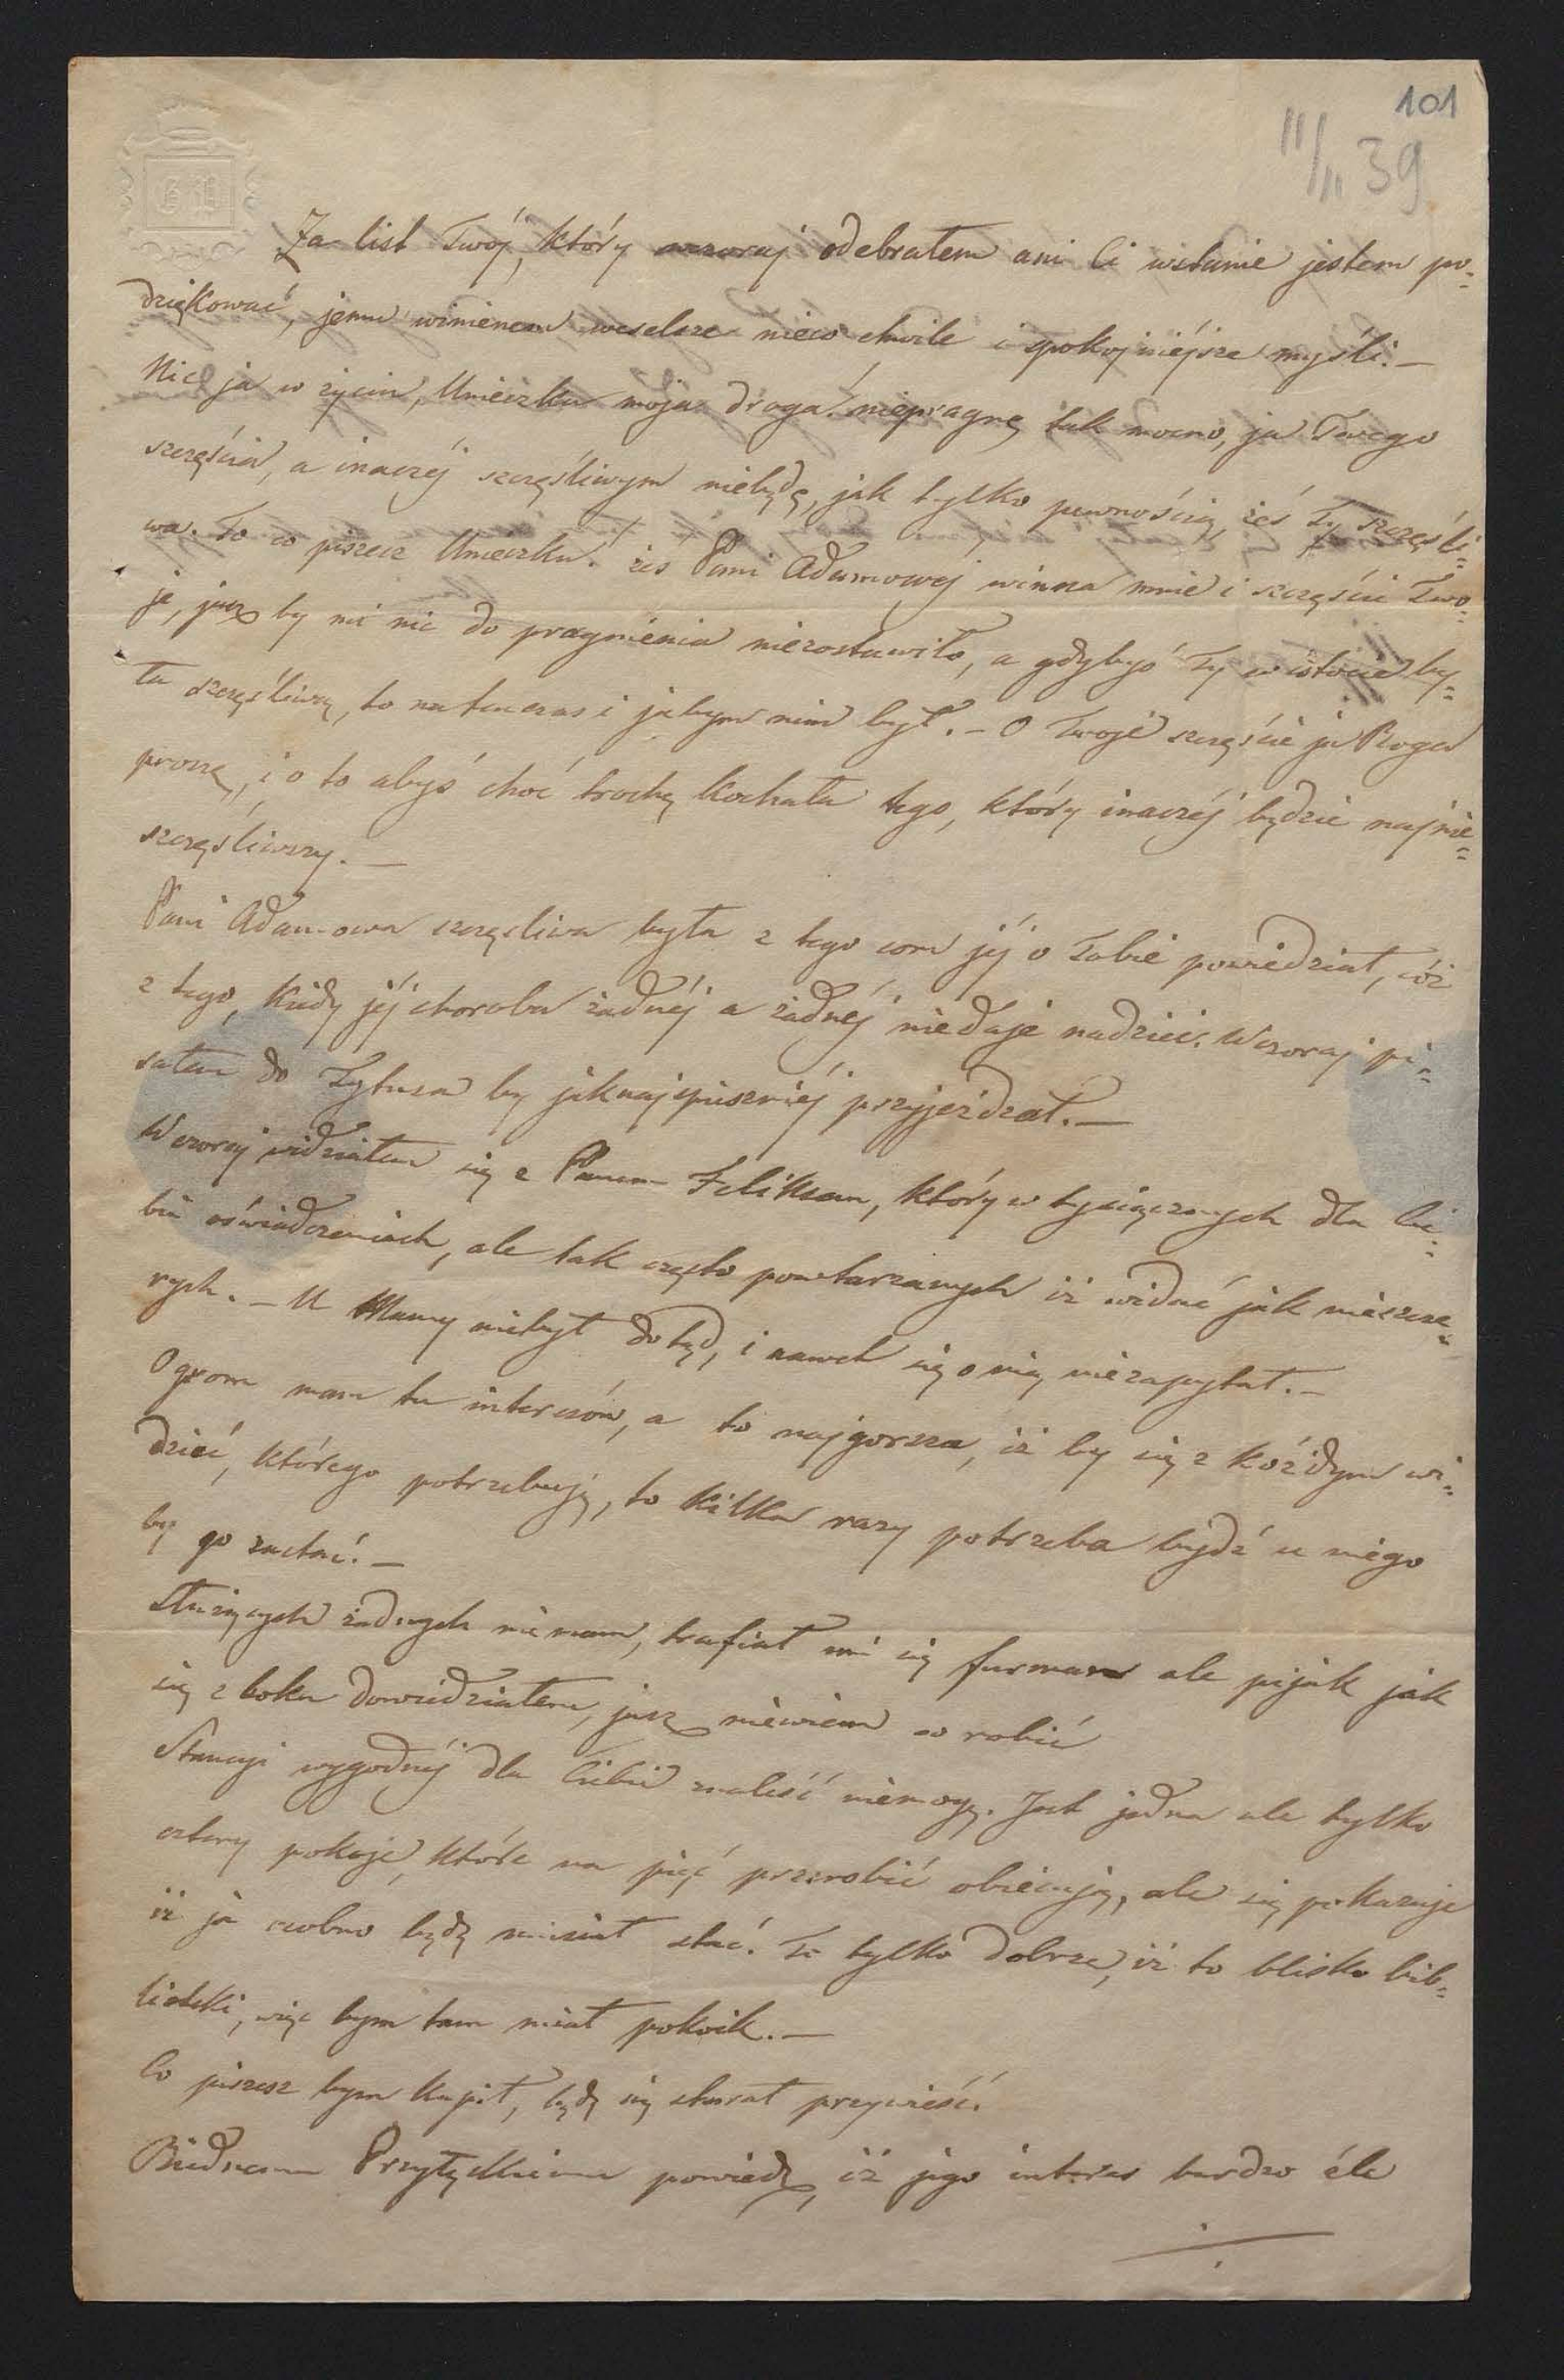 101
11/11 39
Za list Twój, który wczoraj odebrałem ani Ci wstanie jestem po=
dziękować, jemu winienem weselsze nieco chwile i spokojniéjsze myśli. —
Nic ja w życiu, Unieczku moja droga! niepragnę tak mocno, ja Twego
szczęścia, a inaczéj szczęśliwym niebędę, jak tylko pewnością, żeś Ty szczęśli=
wa. To co piszesz Unieczku! żeś Pani Adamowej winna mnie i szczęście Two=
je, jusz by mi nic do pragnienia niezostawiło, a gdybyś Ty w istocie by=
ła szczęśliwą, to natenczas i jabym nim był. — O Twoje szczęście ja Boga
proszę, i o to abyś choć trochę kochała tego, który inaczéj będzie najnie=
szczęśliwszy. —
Pani Adamowa szczęśliwa była z tego com jéj o Tobie powiedział, cóż
z tego, kiedy jéj choroba żadnéj a żadnéj niedaje nadziei. Wczoraj pi=
sałem do Tytusa by jaknajspieszniéj przyjeżdżał. —
Wczoraj widziałem się z Panem Feliksem, który w tysiącznych dla Cie=
bie oświadczeniach, ale tak często powtarzanych iż widać jak nieszcze=
rych. — U Mamy niebył dotąd, i nawet się o nią niezapytał. —
Ogrom mam tu interesów, a to najgorsza, iż by się z każdym wi=
dzieć, którego potrzebuję, to kilka razy potrzeba bydź u niego
by go zastać. —
Służących żadnych niemam, trafiał mi się furman ale pijak jak
się z boku dowiedziałem, jusz niewiem co robić
Stancyi wygodnéj dla Ciebie znaleść niemogę. Jest jedna ale tylko
cztery pokoje, które na pięć przerobić obiecują, ale się pokazuje
iż ja osobno będę musiał stać. To tylko dobrze, iż to blisko bib=
lioteki, więc bym tam miał pokoik. —
Co piszesz bym kupił, będę się starał przywieść.
Biednemu Przyłęckiemu powiedz, iż jego interes bardzo źle